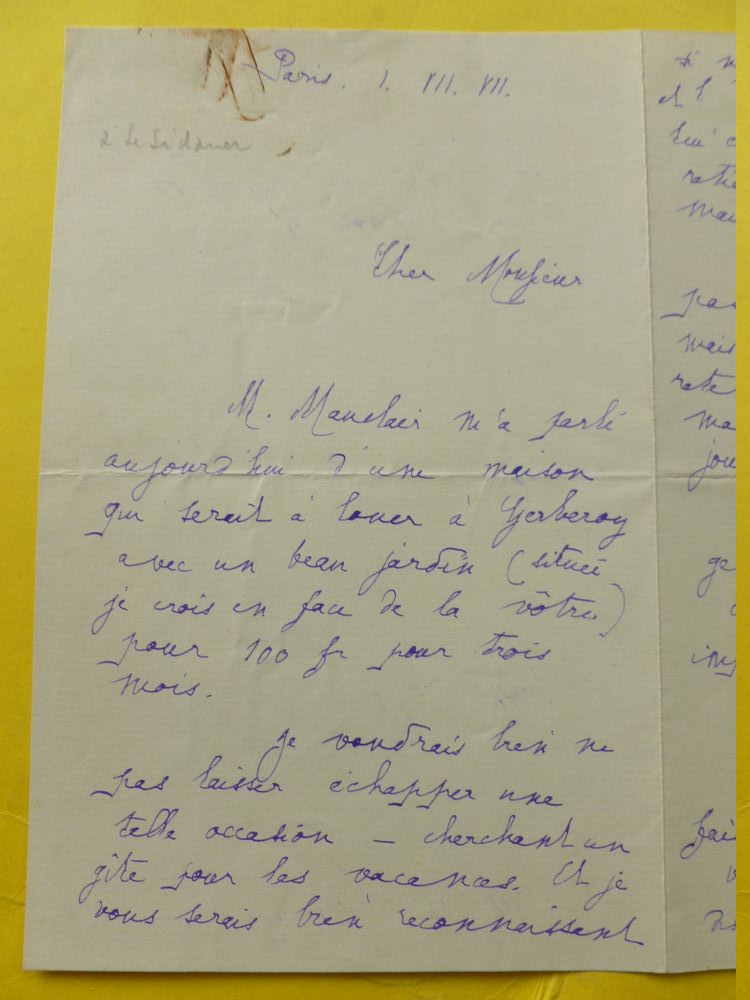 Paris. 1. VII. VII.
à Le Sidaner
Cher Monsieur
M. Mauclair m'a parlé
aujourd'hui d'une maison
qui serait à louer à Gerberoy
avec un beau jardin (située
je crois en face de la vôtre)
pour 100 fr pour trois
mois.
Je voudrais bien ne
pas laisser échapper une
telle occasion — cherchant un
gîte pour les vacances. Et je
vous serais bien reconnaissant
et l
qu'
mai
pas
mais
ma
jou
ge
fai